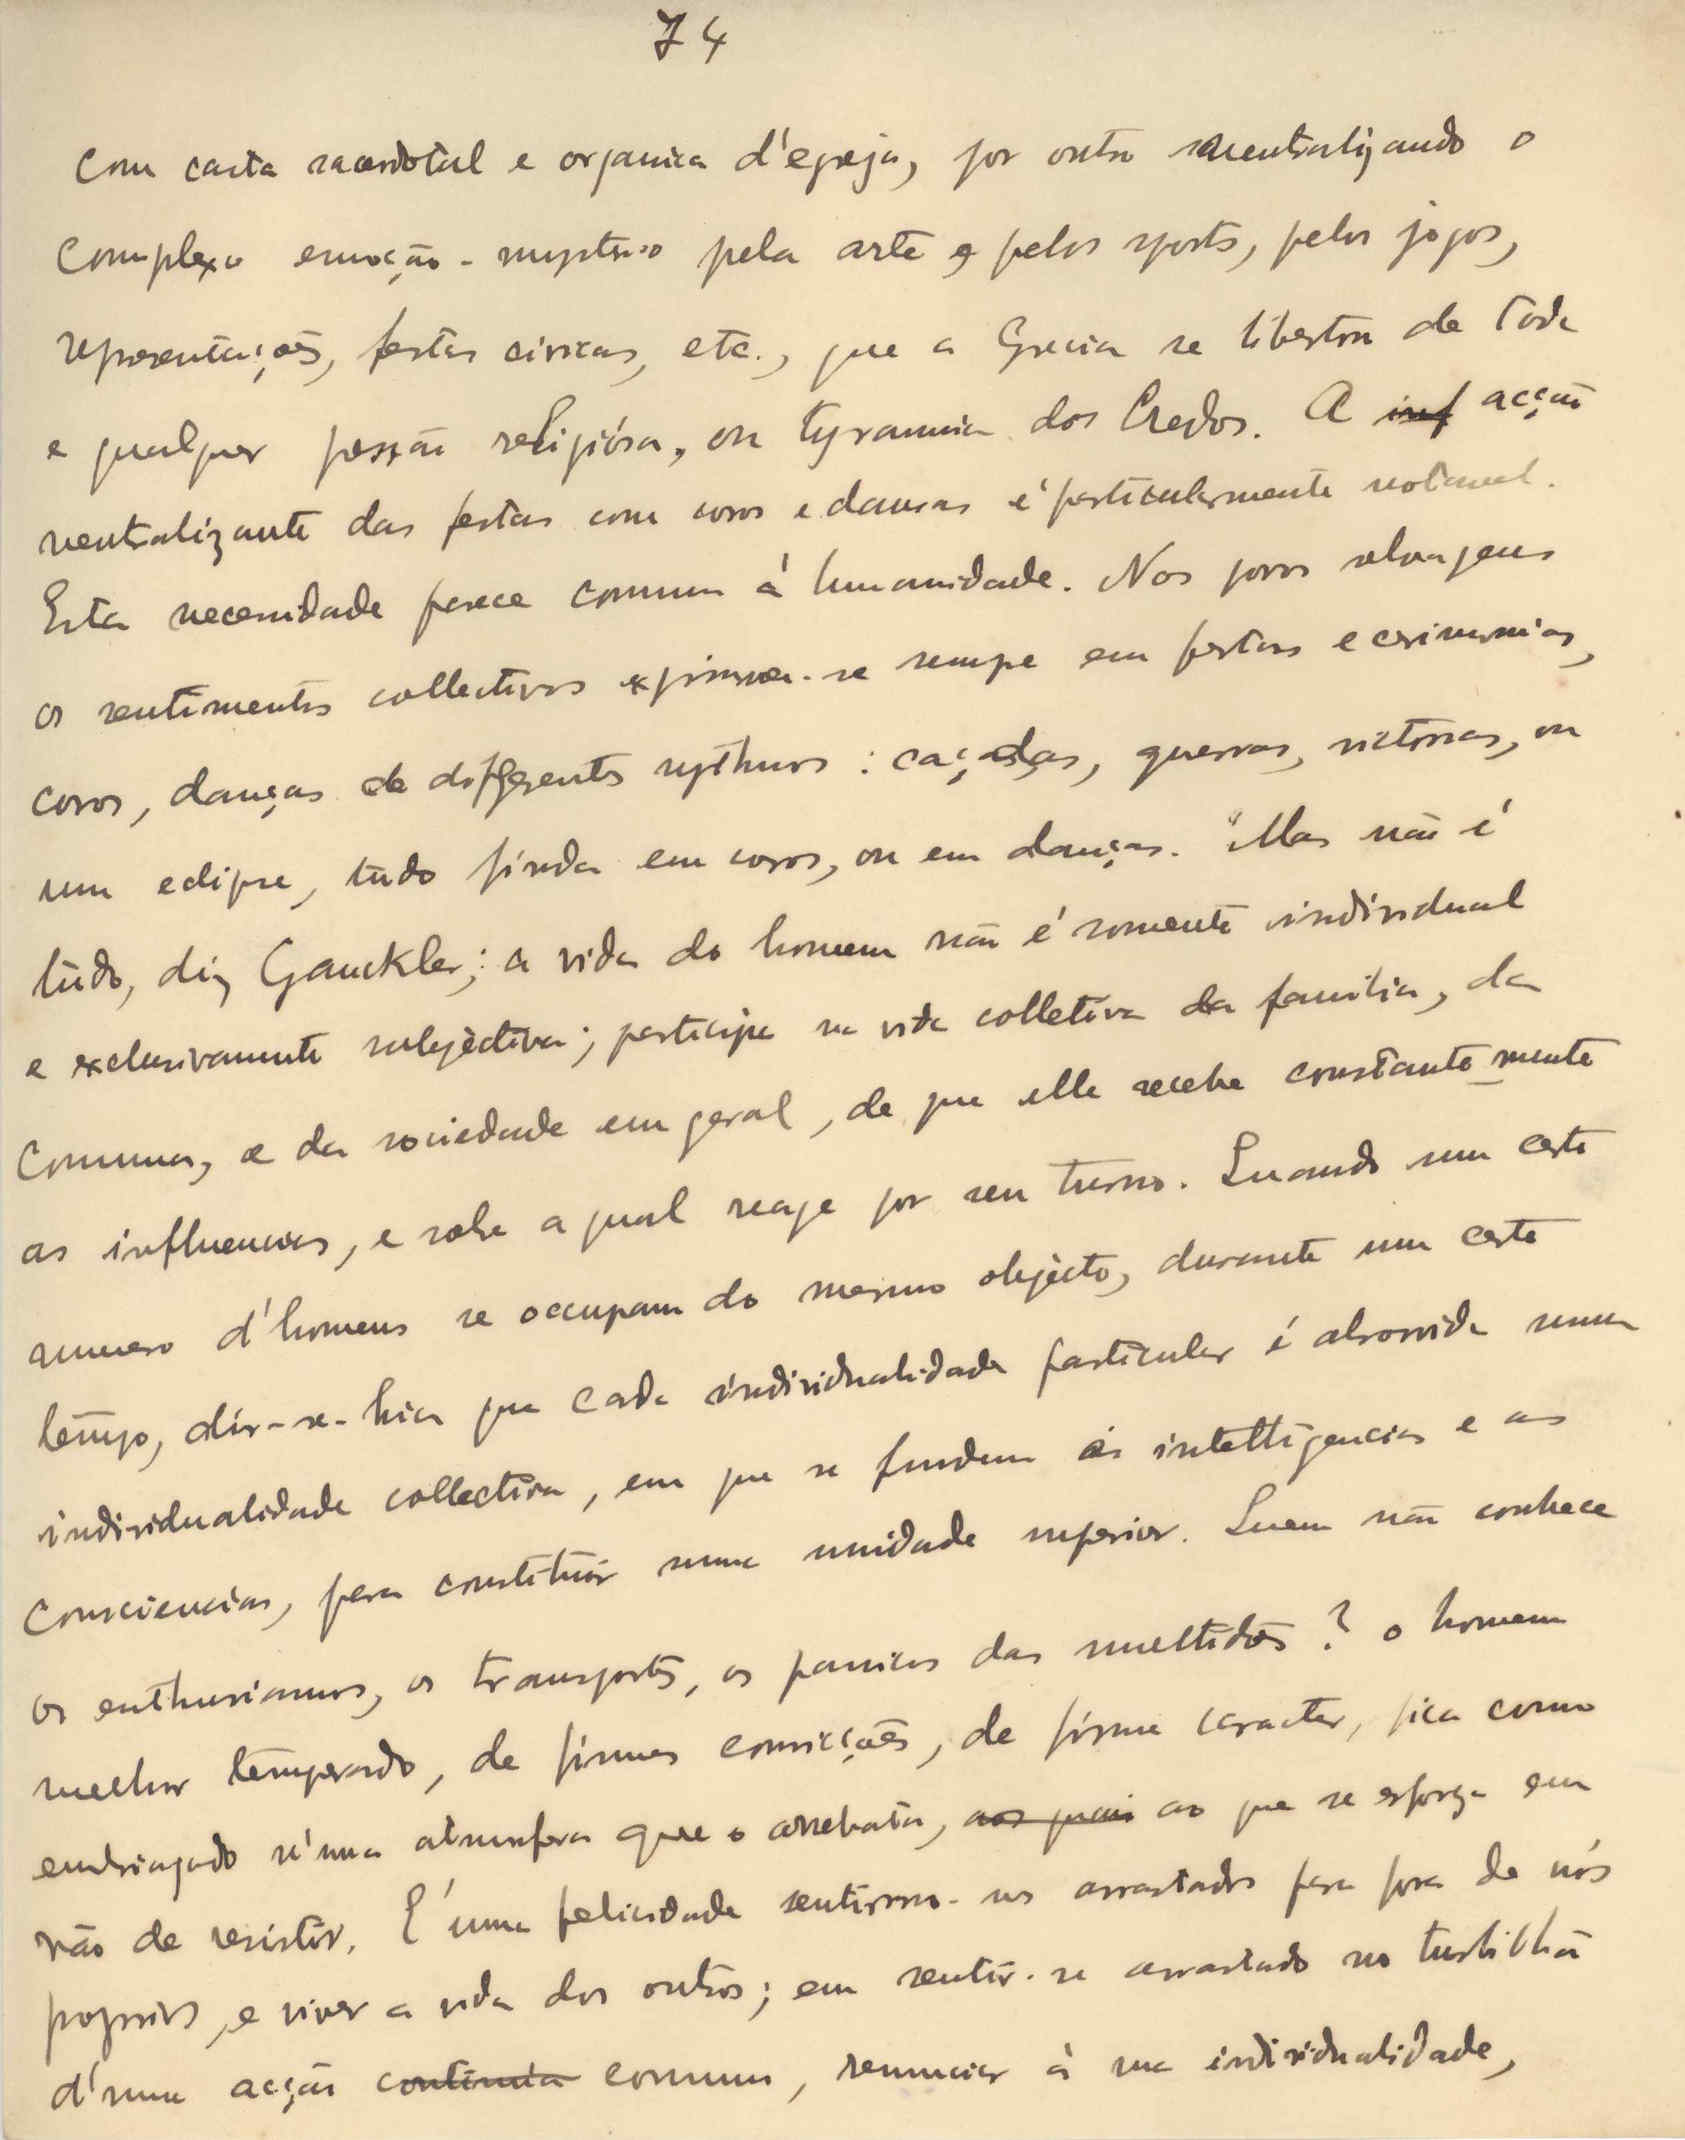 74
com casta sacerdotal e organica d'egreja, por outro neutralizando o
complexo emoção-mysterio pela arte e pelos sports, pelos jogos,
representações, festas civicas, etc., que a Grecia se libertou de toda
e qualquer pressão religiósa, ou tyrannia dos Credos. A inf acção
neutralizante das festas com coros e dansas é particularmente notavel.
Esta necessidade parece commum á humanidade. Nos povos selvagens
os sentimentos collectivos exprimem-se sempre em festas e cerimonias,
coros, danças de differentes rythmos: caçadas, guerras, victorias, ou
um eclipse, tudo finda em coros, ou em danças. "Mas não é
tudo, diz Gauckler; a vida do homem não é somente individual
e exclusivamente subjectiva; participa na vida colletiva da familia, da
communa, e da sociedade em geral, de que elle recebe constantemente
as influencias, e sobre a qual reage por seu turno. Quando um certo
numero d'homens se occupam do mesmo objècto, durante um certo
tempo, dir-se-hia que cada individualidade particular é absorvida numa
individualidade collectiva, em que se fundem as intelligencias e as
consciencias, para constituir uma unidade superior. Quem não conhece
os enthusiasmos, os transportes, os panicos das multidões? o homem
melhor temperado, de firmes convicções, de firme caracter, fica como
embriagado n'uma atmosfera que o arrebata, aos quais ao que se esforça em
vão de resistir. É uma felicidade sentirmo-nos arrastados para fora de nós
proprios, e viver a vida dos outros; em sentir-se arrastado no turbilhão
d'uma acção continúa commum, renunciar á sua individualidade,